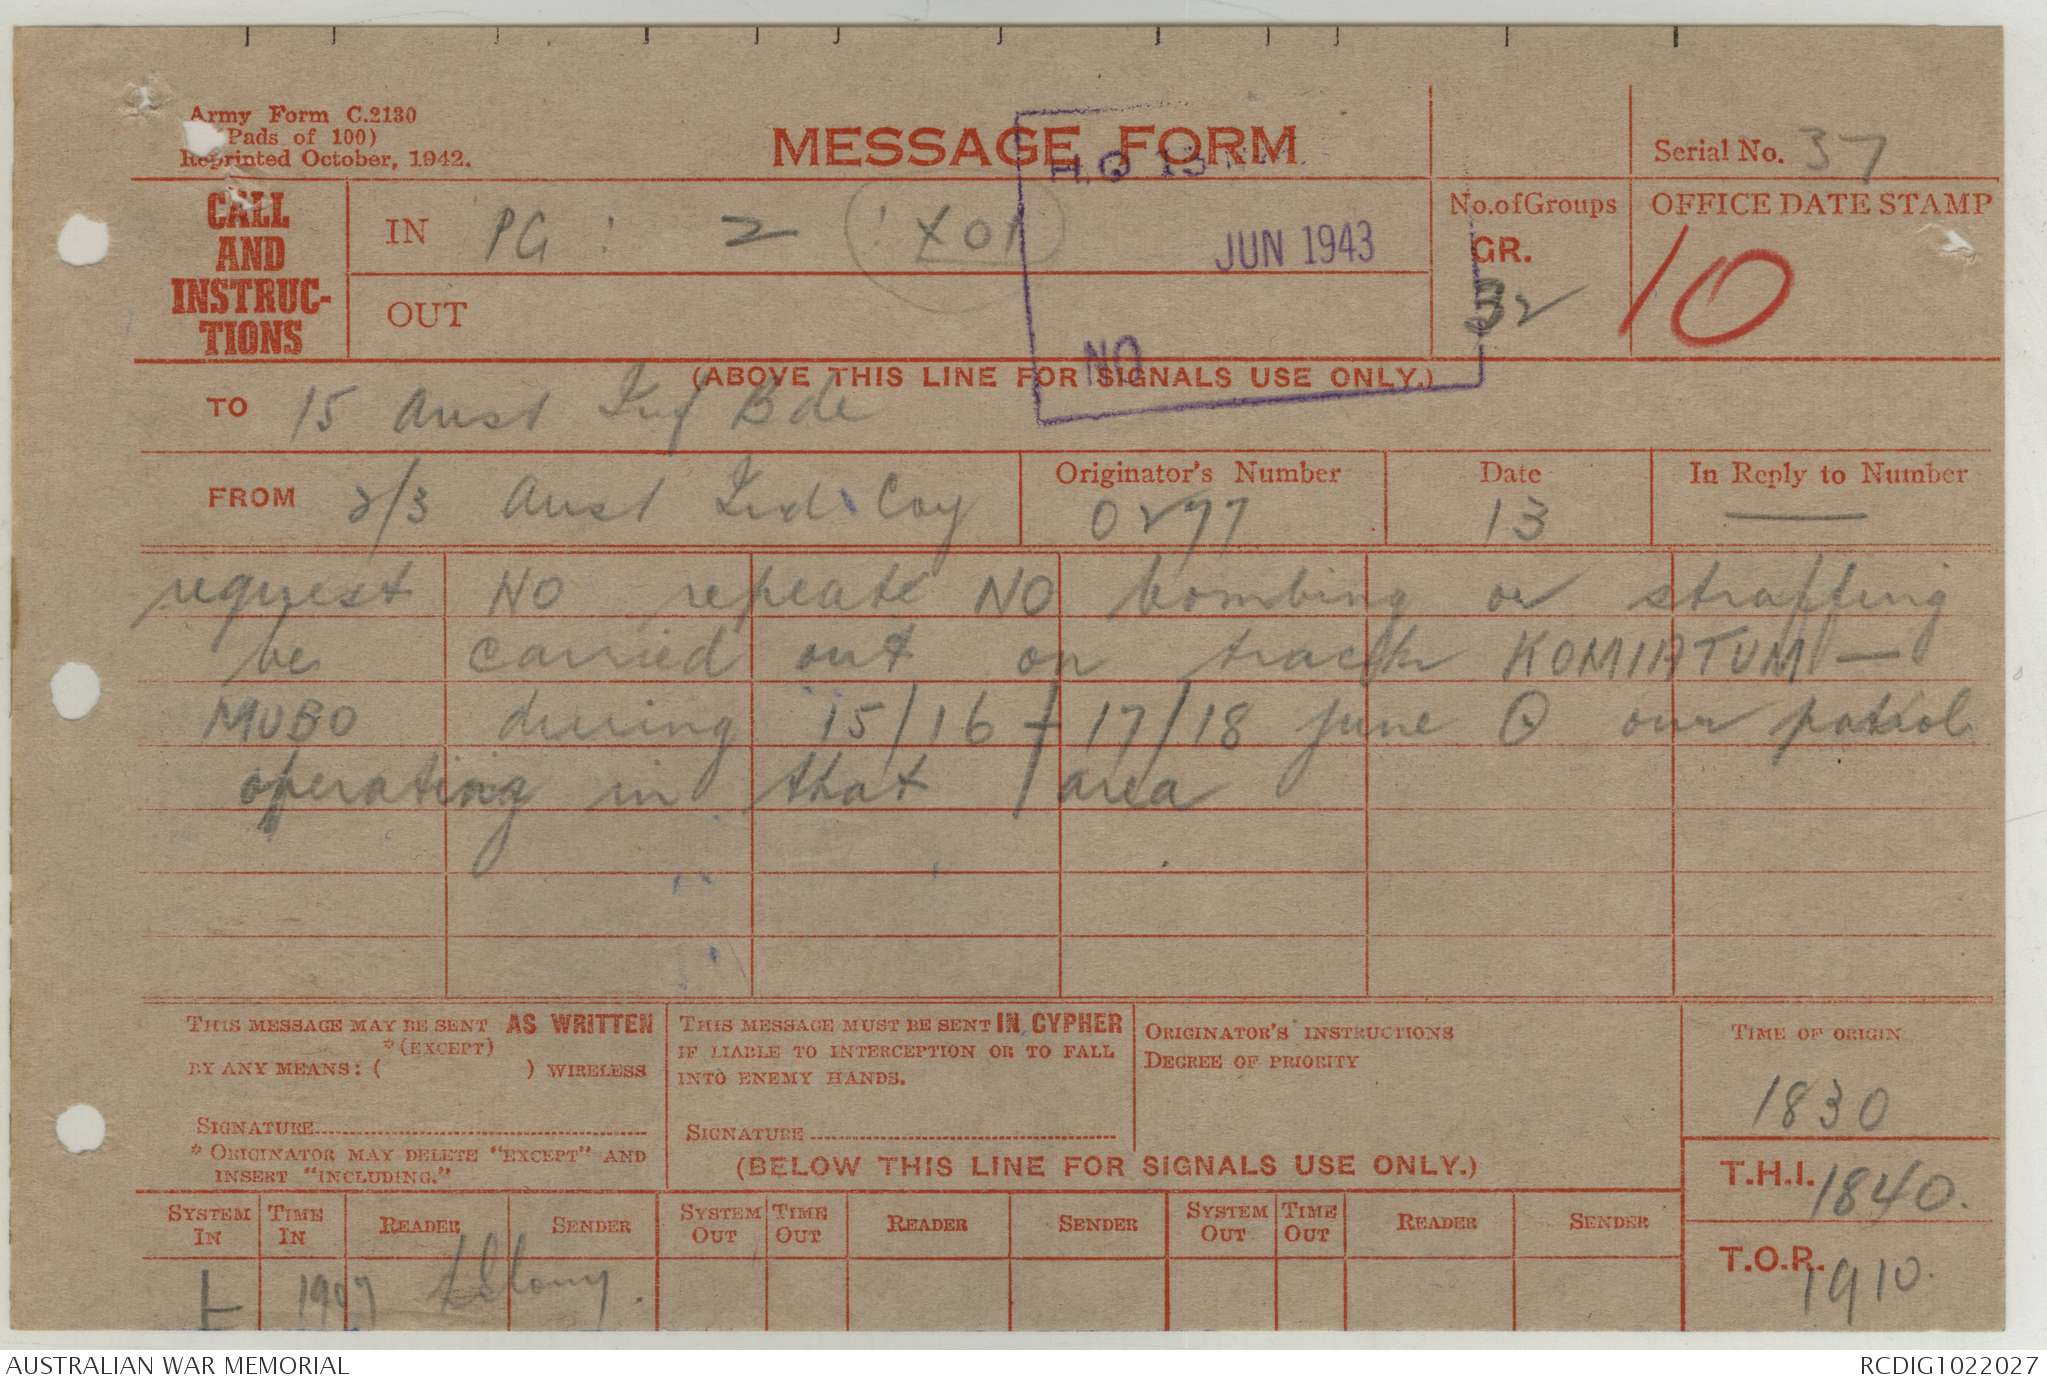 Army Form C.2130
(Pads of 100)
Reprinted October, 1942.
MESSAGE FORM
Serial No. 37
H.Q 15
CALL AND INSTRUC-TIONS
IN PG : 2
JUN 1943
No. of Groups
GR.
32
OFFICE DATE STAMP
10
OUT
NO
(ABOVE THIS LINE FOR SIGNALS USE ONLY.)
TO 15 Aust Inf Bde
FROM 2/3 Aust Ind Coy
Originator's Number
0277
Date
13
In Reply to Number
—
request NO repeate NO bombing or straffing
be carried out on track KOMIATUM —
MUBO during 15/16 - 17/18 june O our patrol
operating in that area
THIS MESSAGE MAY BE SENT AS WRITTEN
*(EXCEPT)
BY ANY MEANS: ( ) WIRELESS
SIGNATURE
* ORIGINATOR MAY DELETE "EXCEPT" AND
INSERT "INCLUDING."
THIS MESSAGE MUST BE SENT IN CYPHER
IF LIABLE TO INTERCEPTION OR TO FALL
INTO ENEMY HANDS.
SIGNATURE
ORIGINATOR'S INSTRUCTIONS
DEGREE OF PRIORITY
TIME OF ORIGIN
1830
(BELOW THIS LINE FOR SIGNALS USE ONLY.)
T.H.I. 1840.
T.O.R. 1910.
SYSTEM IN TIME IN READER SENDER SYSTEM OUT TIME OUT READER SENDER SYSTEM OUT TIME OUT READER SENDER
L 1907
AUSTRALIAN WAR MEMORIAL
RCDIG1022027